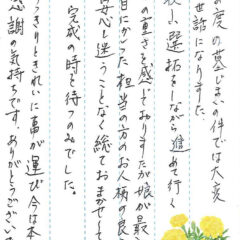 の度の墓じまいの件では大変
世話になりました。
の重さを感じておりましたが娘が最
目にかかった担当の方のお人柄の良
安心し迷うことなく総ておまかせして
完成の時を待つのみでした。
っきりときれいに事が運び今は本
謝の気持ちです。ありがとうござい